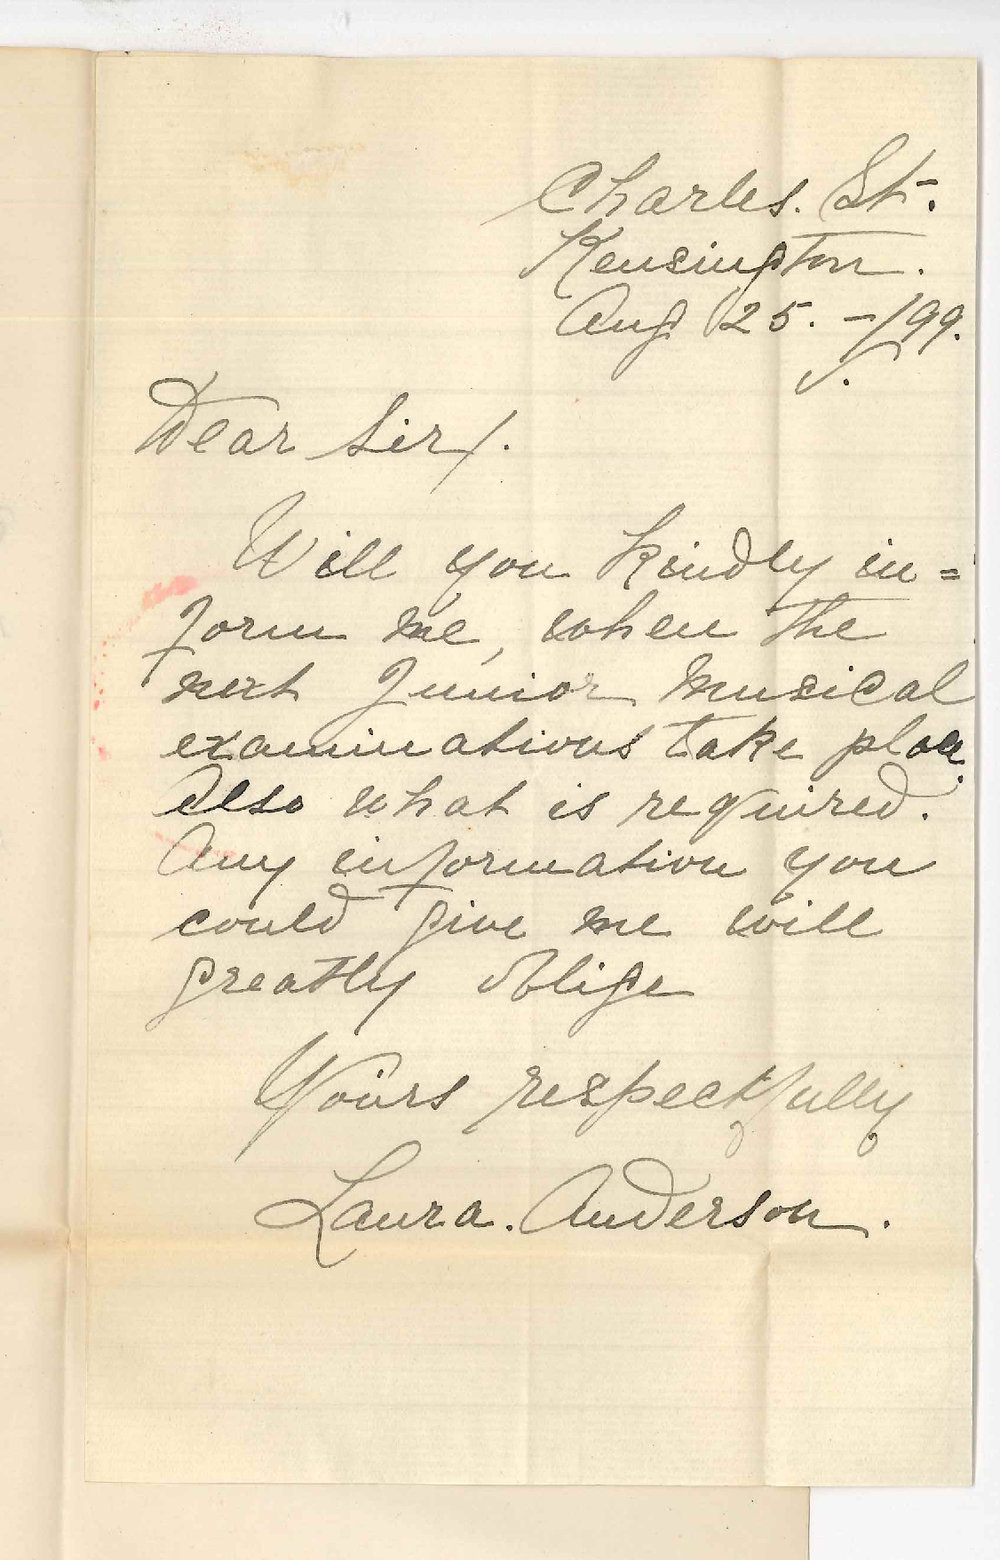 Charles. St.
Kensington.
Aug 25. -/99.
Dear Sir/.
Will you kindly in=
form me, when the
next Junior Musical
examinations take place.
Also what is required.
Any information you
could give me will
greatly oblige
Yours respectfully
Laura. Anderson.